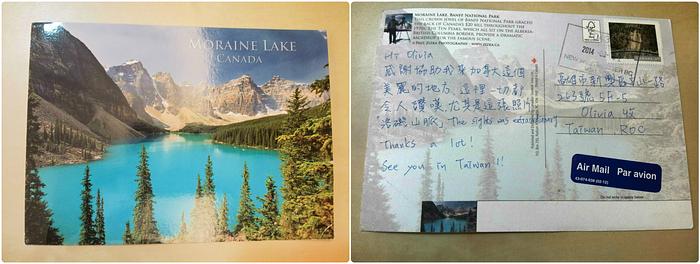 MORAINE LAKE
CANADA
MORAINE LAKE, BANFF NATIONAL PARK
THIS CROWN JEWEL OF BANFF NATIONAL PARK GRACED
THE BACK OF CANADA'S $20 BILL THROUGHOUT THE
1970s. THE TEN PEAKS, WHICH ALL SIT ON THE ALBERTA-
BRITISH COLUMBIA BORDER, PROVIDE A DRAMATIC
BACKDROP FOR THE FAMOUS SCENE.
© PAUL ZIZKA PHOTOGRAPHY · WWW.ZIZKA.CA
Hi Olivia
感謝協助我來加拿大這個
美麗的地方,這裡一切都
令人讚嘆,尤其是這張照片
山脈」The sights was extraordinary
Thanks a lot!
See you in Taiwan!!
2014
高雄市新興區 一路
號 5F-5
Olivia 收
Taiwan, ROC
Air Mail Par avion
43-074-039 (02-12)
Do not write in space below